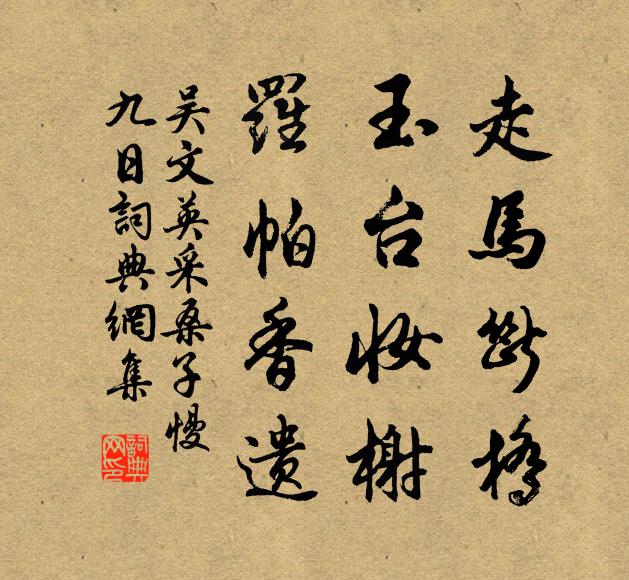 走馬斷橋
玉台妝榭
羅帕香遺
吴文英采桑子慢
九日詞典網集
詞典
网印